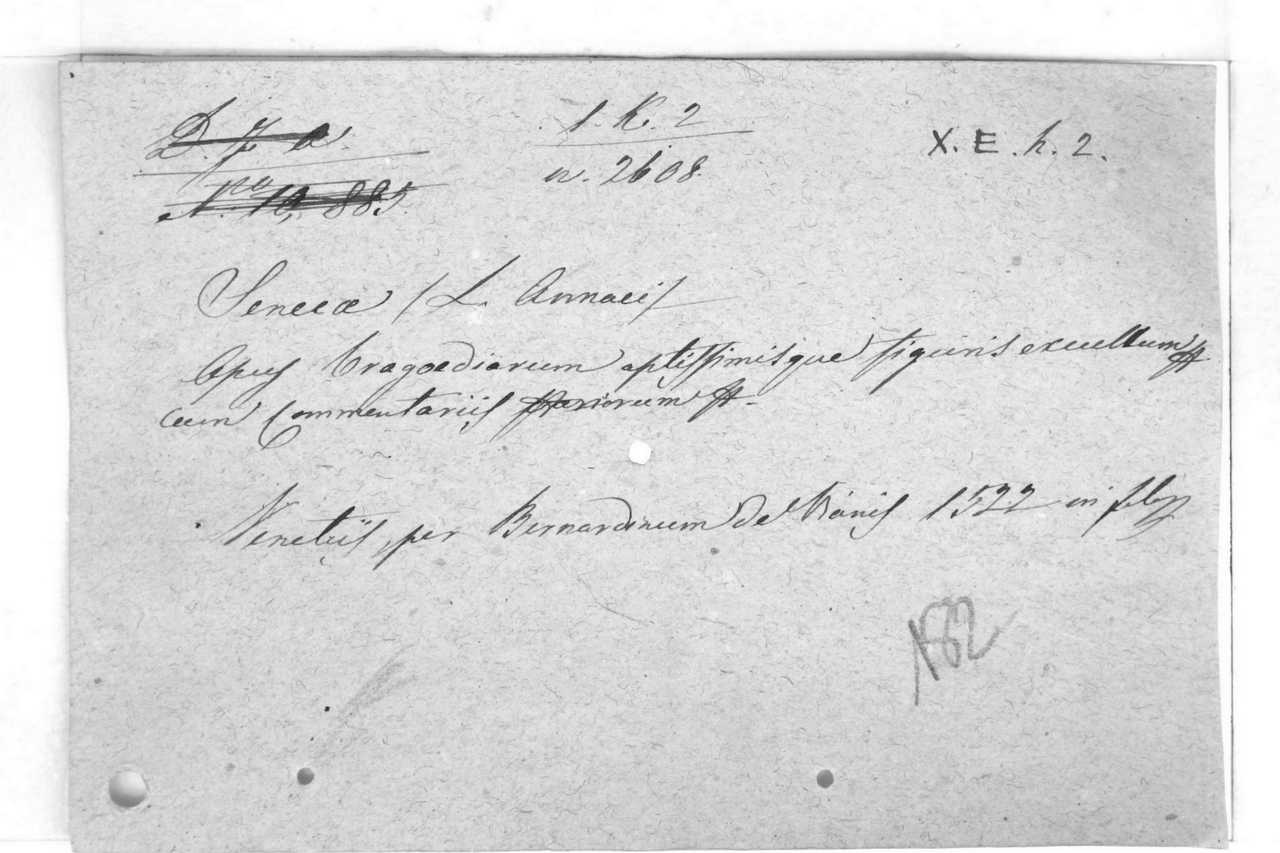 D. J. a.
1. K. 2
X. E. h. 2.
Nro 10,885.
n. 2608.
Senecæ /L. Annaei/
Opus Tragoediarum aptissimisque figuris excultum
cum Commentariis
Venetiis, per Bernardinum de Vianis 1522 in fol.